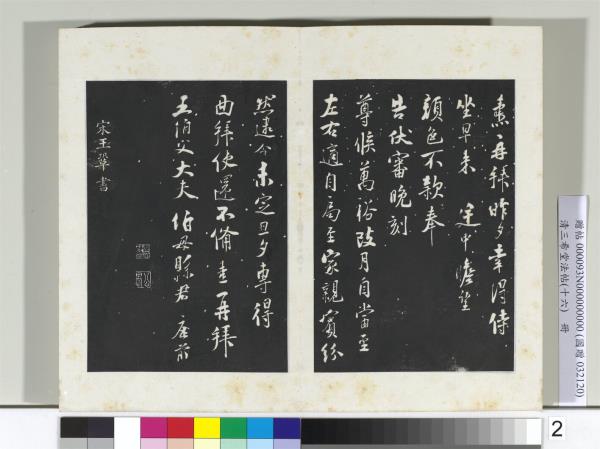 再拜昨夕幸得侍
坐早來 廷中瞻望
顏色不款奉
告伏審晚刻
尊候萬裕改月自當至
左右適自局至家親賓紛
然遽今未定旦夕專得
面拜使還不備 再拜
五伯父大夫伯母縣君 座前
宋王鞏書
贈帖 000093N000000000 (國贈 032120)
清三希堂法帖(十六) 冊
2